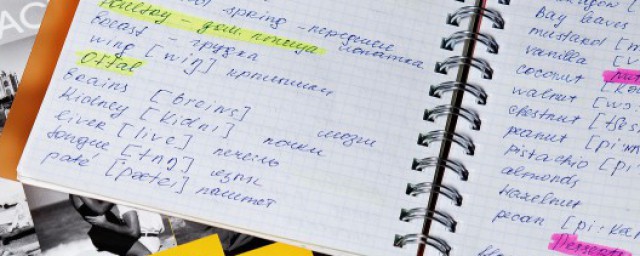 AC
spring - передние
Poultry - дом. птица лопатка
breast - грудка
wing [wiŋ] крылышки
Offal
Brains [breins] мозги
Kidney [kidni] почки
liver [live] печень
tongue [tʌŋ] язык
paté [pætei] паштет
Bay leaves
mustard [m
vanilla [v
coconut [
walnut [wɔ
chestnut [tʃes
peanut [pi:n
pistachio [pi
almonds
Hazelnut
pecan [pi·ka
Desserts